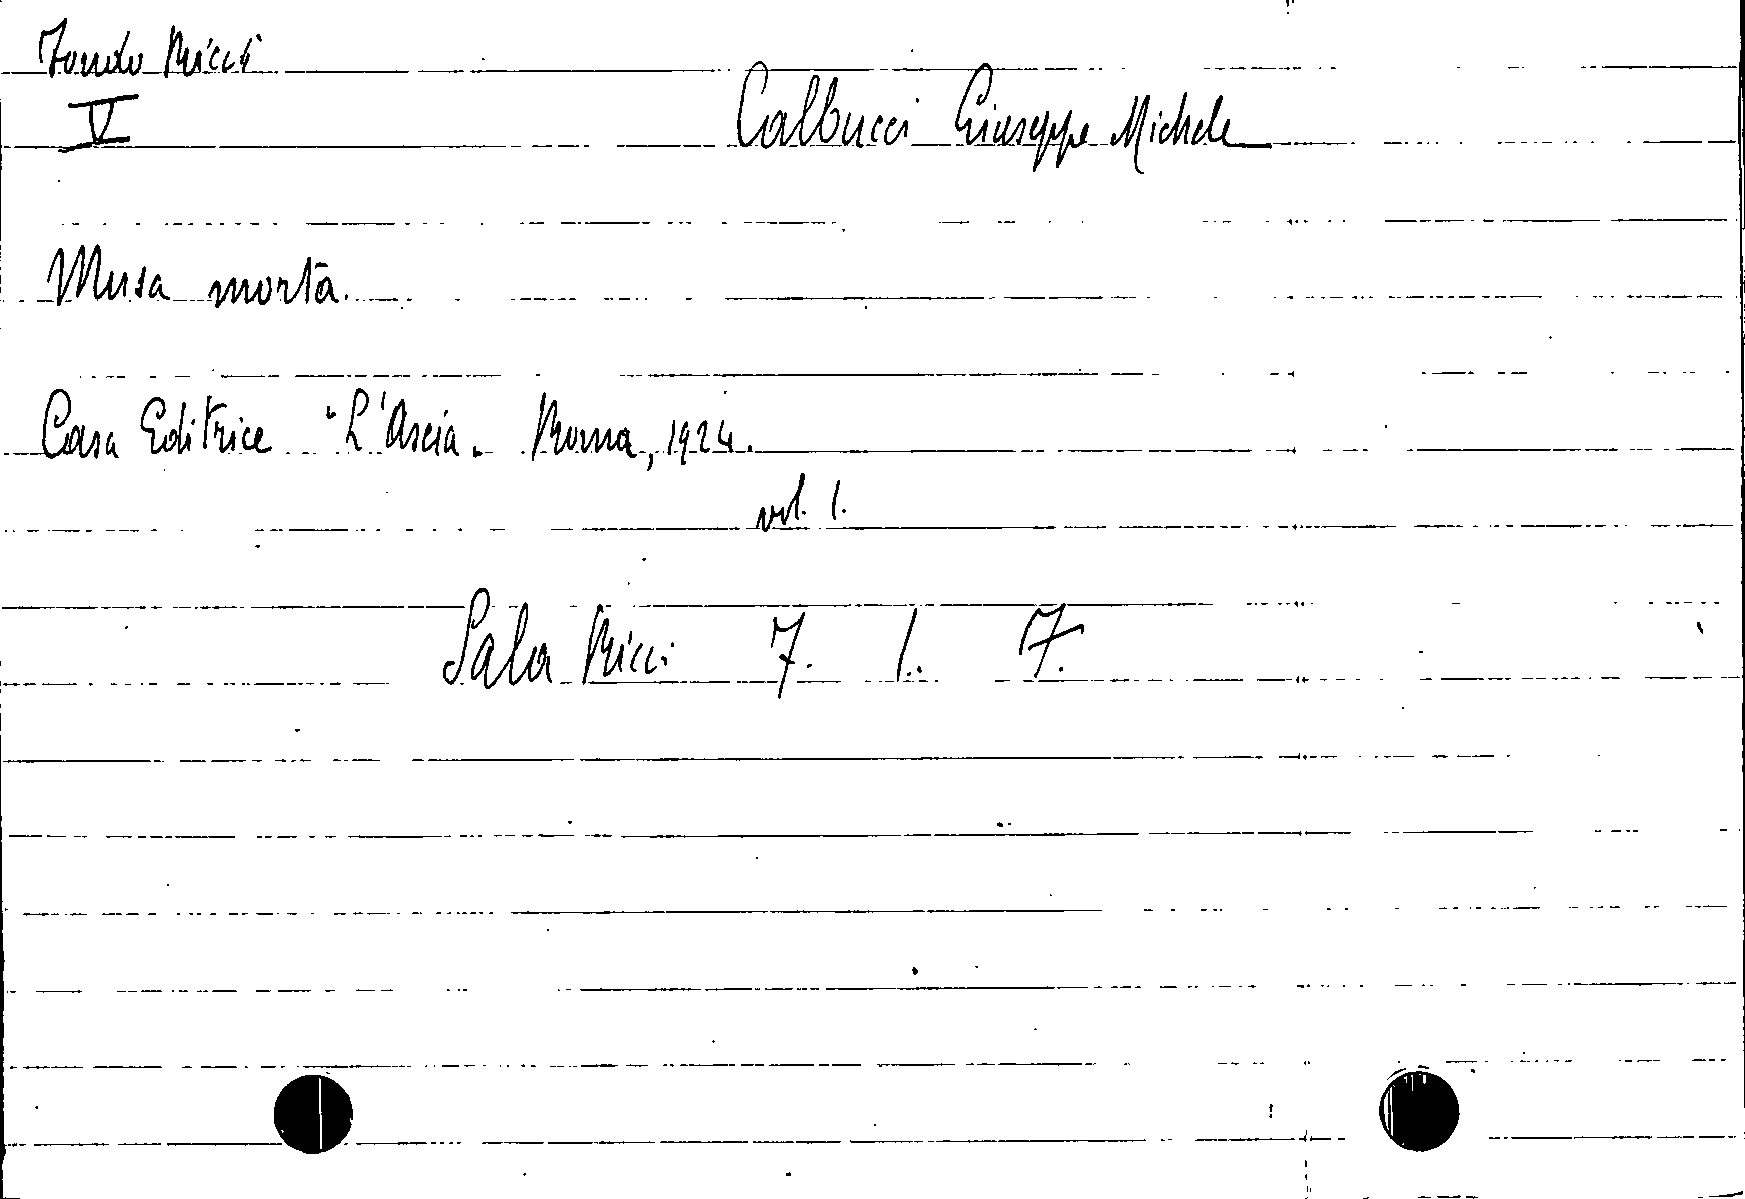 Fondo Ricci
V
Calbucci Giuseppe Michele
Musa morta.
Casa Editrice "L'Ascia" Roma, 1924.
vol. 1.
Sala Ricci 7. 1. 7.